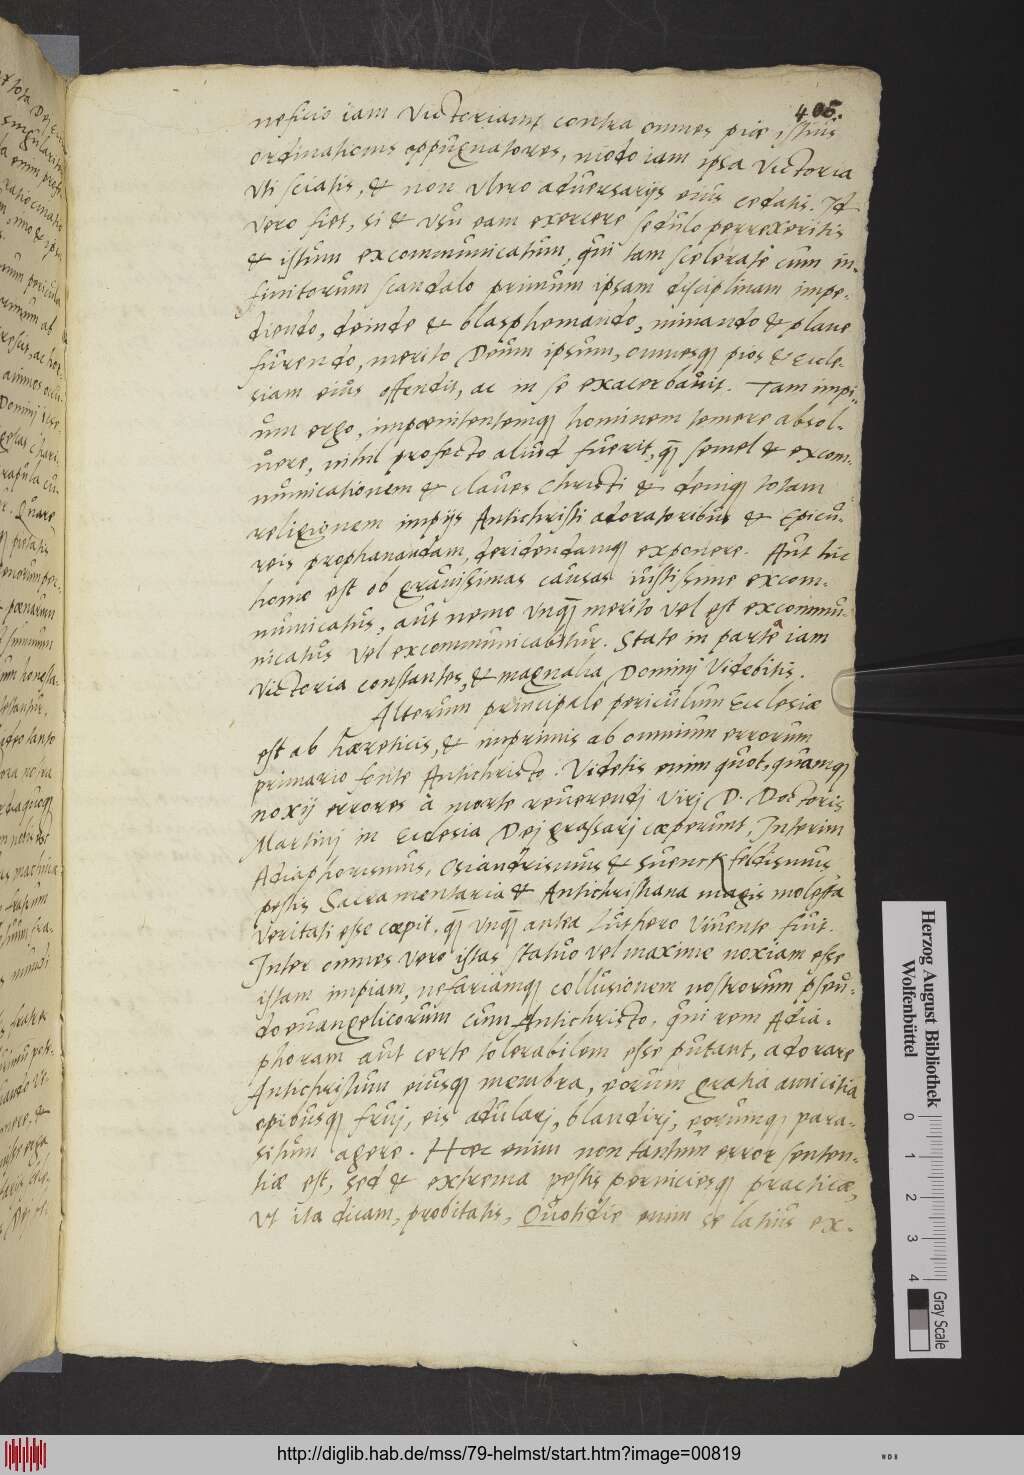 405.
neficio iam Victoriamq contra omnes pie istius
ordinationis oppugnatores, modo iam ipsa Victoria
Vti sciatis, & non Vltro aduersarijs eius cedatis. Id
vero fiet, si & Vsu eam exercere sedulo perrexeritis
& istum excommunicatum, qui tam scelerate cum in-
finitorum scandalo primum ipsam disciplinam impe-
diendo, deinde & blasphemando, minando & plane
furendo, merito Deum ipsum, omnesq pios & Eccle-
siam eius offendit, ac in se exacerbauit. Tam impi-
um ergo, impoenitentemq hominem temere absol-
uere, nihil profecto aliud fuerit, q̄ semel & excom-
municationem & claues Christi & deniq totam
religionem impijs Antichristi adoratoribus & Epicu-
reis prophanandam, deridendamq exponere. Aut hic
homo est ob grauissimas causas iustissime excom-
municatus, aut nemo vnq̄ merito vel est excommu-
nicatus vel excommunicabitur. State in parta iam
Victoria constantes, & magnalia Dominj Videbitis.
Alterum principale periculum Ecclesiæ
est ab hæreticis, & imprimis ab omnium errorum
primario fonte Antichristo. Videtis enim quot, quamq
noxij errores à morte reuerendj Virj D. Doctoris
Martinj in Ecclesia Dej grassarj cæperunt, Interim
Adiaphorismus, Osiandrismus & Suenckfeldismus
pestis Sacramentaria & Antichristiana magis molesta
Veritati esse cæpit, q̄ vnq̄ antea Luthero Viuente fuit.
Inter omnes vero istas statuo vel maxime noxiam esse
istam impiam, nefariamq collusionem nostrorum pseu-
doeuangelicorum cum Antichristo, qui rem Adia-
phoram aut certe tolerabilem esse putant, adorare
Antichristum eiusq membra, eorum gratia amicitia
opibusq fruj, eis adularj, blandirj, eorumq para-
situm agere. Hæc enim non tantum error senten-
tiæ est, sed & extrema pestis perniciesq practicæ,
Vt ita dicam, probitatis, Quotidie enim se latius ex-
Herzog August Bibliothek
Wolfenbüttel
0 1 2 3 4
Gray Scale
http://diglib.hab.de/mss/79-helmst/start.htm?image=00819